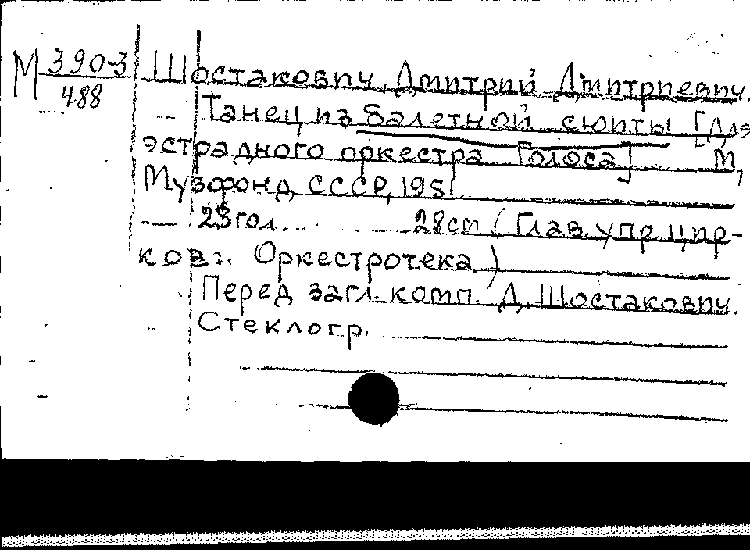 М 390-3 Шостакович, Дмитрий Дмитриевич.
488
Танец из балетной сюиты [Для
эстрадного оркестра. Голоса] М.,
Музфонд СССР, 195
23 гол. 28 см (Глав. упр. цир-
ков. Оркестротека)
Перед загл. комп. Д. Шостакович.
Стеклогр.